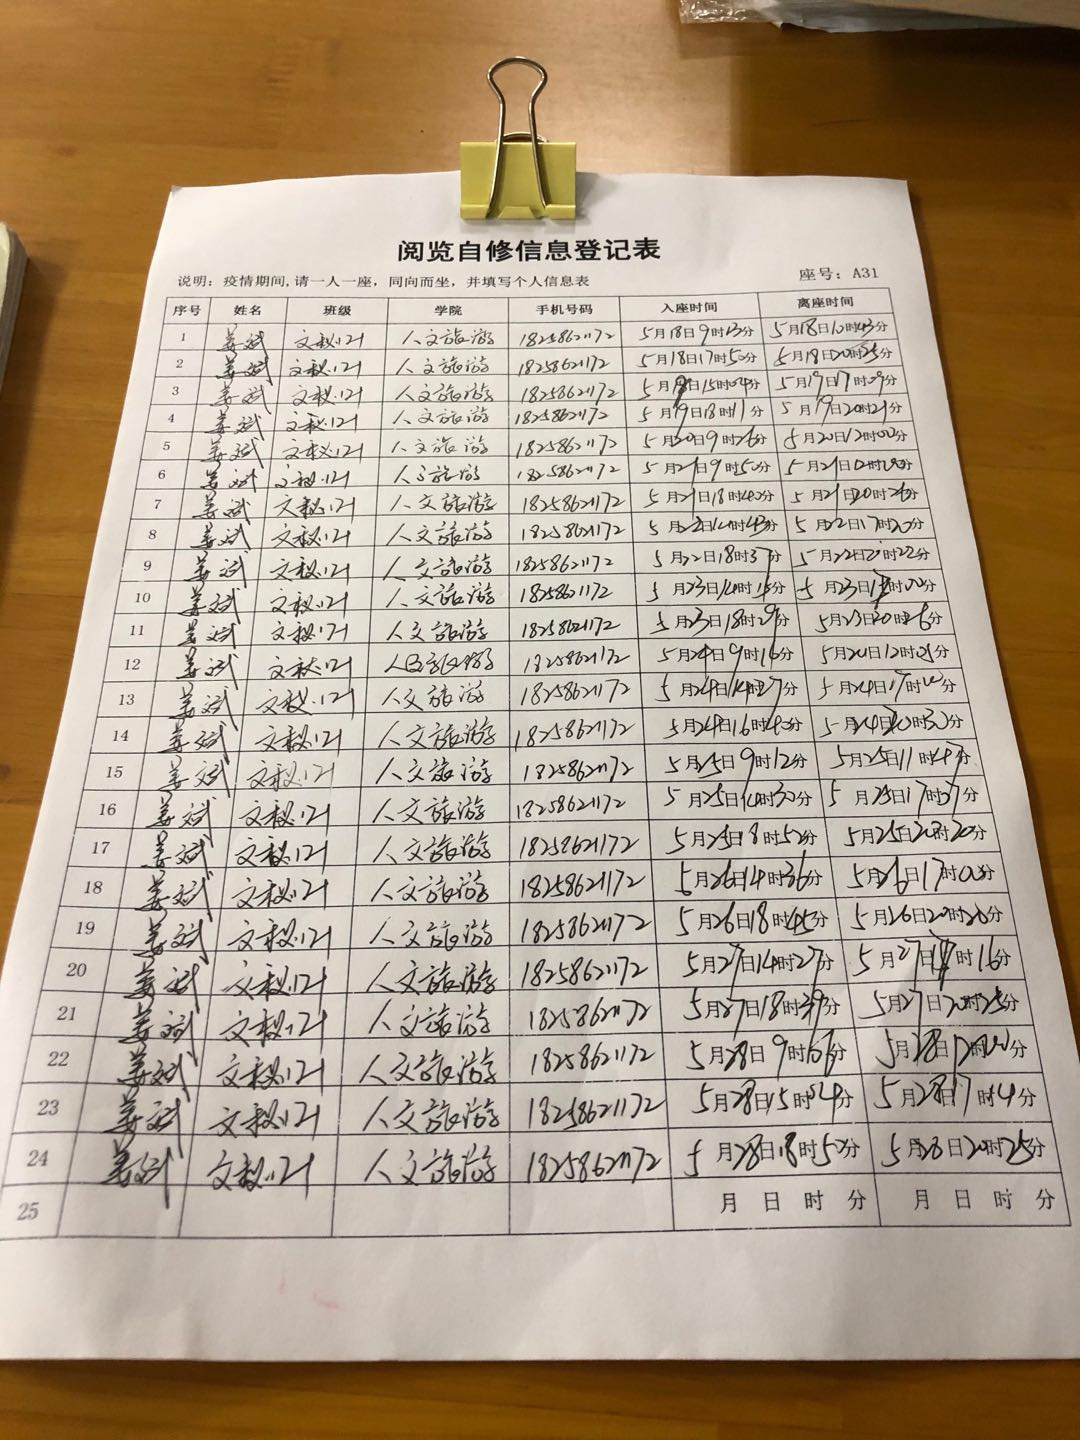 阅览自修信息登记表
说明：疫情期间,请一人一座，同向而坐，并填写个人信息表 座号：A31
序号 姓名 班级 学院 手机号码 入座时间 离座时间
1 姜斌 文秘121 人文旅游 18258621172 5月18日9时23分 5月18日12时43分
2 姜斌 文秘121 人文旅游 18258621172 5月18日17时50分 5月18日20时25分
3 姜斌 文秘121 人文旅游 18258621172 5月19日15时04分 5月19日17时09分
4 姜斌 文秘121 人文旅游 18258621172 5月19日18时11分 5月19日20时21分
5 姜斌 文秘121 人文旅游 18258621172 5月20日9时26分 5月20日12时00分
6 姜斌 文秘121 人文旅游 18258621172 5月21日9时50分 5月21日12时分
7 姜斌 文秘121 人文旅游 18258621172 5月21日18时40分 5月21日20时26分
8 姜斌 文秘121 人文旅游 18258621172 5月22日14时43分 5月22日17时20分
9 姜斌 文秘121 人文旅游 18258621172 5月22日18时37分 5月22日21时22分
10 姜斌 文秘121 人文旅游 18258621172 5月23日14时15分 5月23日时00分
11 姜斌 文秘121 人文旅游 18258621172 5月23日18时29分 5月23日20时26分
12 姜斌 文秘121 人文旅游 18258621172 5月24日9时16分 5月20日12时01分
13 姜斌 文秘121 人文旅游 18258621172 5月24日14时27分 5月24日17时分
14 姜斌 文秘121 人文旅游 18258621172 5月24日16时40分 5月24日20时30分
15 姜斌 文秘121 人文旅游 18258621172 5月25日9时12分 5月25日11时47分
16 姜斌 文秘121 人文旅游 18258621172 5月25日14时30分 5月25日17时37分
17 姜斌 文秘121 人文旅游 18258621172 5月25日8时52分 5月25日20时20分
18 姜斌 文秘121 人文旅游 18258621172 5月26日14时36分 5月26日17时00分
19 姜斌 文秘121 人文旅游 18258621172 5月26日18时45分 5月26日20时26分
20 姜斌 文秘121 人文旅游 18258621172 5月27日14时27分 5月27日17时16分
21 姜斌 文秘121 人文旅游 18258621172 5月27日18时39分 5月27日20时25分
22 姜斌 文秘121 人文旅游 18258621172 5月28日9时分 5月28日12时分
23 姜斌 文秘121 人文旅游 18258621172 5月28日15时04分 5月28日17时14分
24 姜斌 文秘121 人文旅游 18258621172 5月28日18时50分 5月28日20时25分
25 月 日 时 分 月 日 时 分